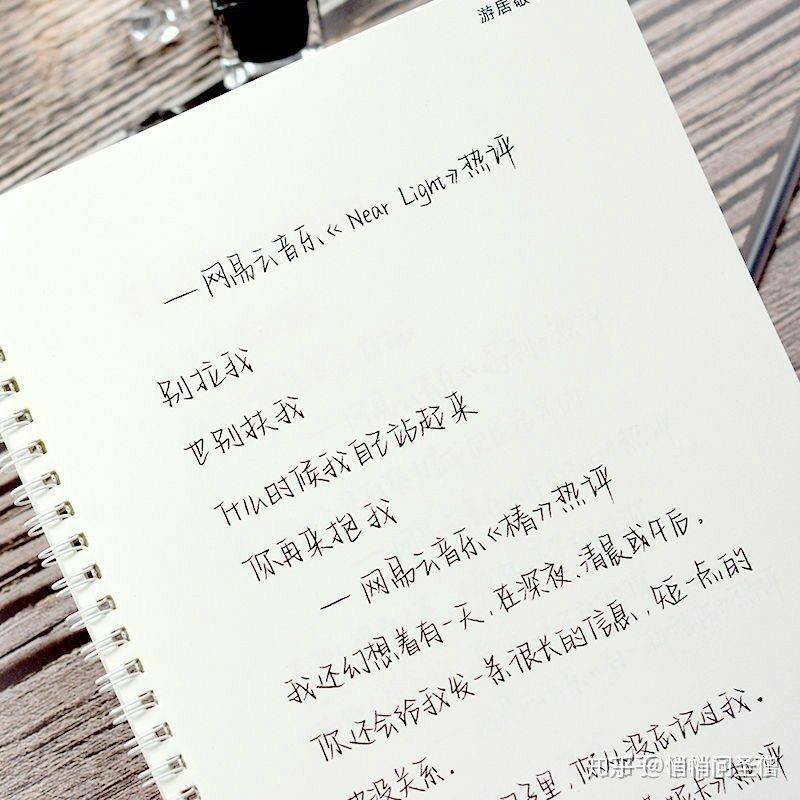 游居
— 网易云音乐《Near Light》热评
别拉我
也别扶我
时候我自己站起来
你再来抱我
— 网易云音乐《椿》热评
我还幻想着有一天,在深夜、清晨或午后,
你还会给我发一条很长的信息,短一点的
也没关系。
里,你从没忘记过我。
》热评
知乎 @悄悄问圣僧